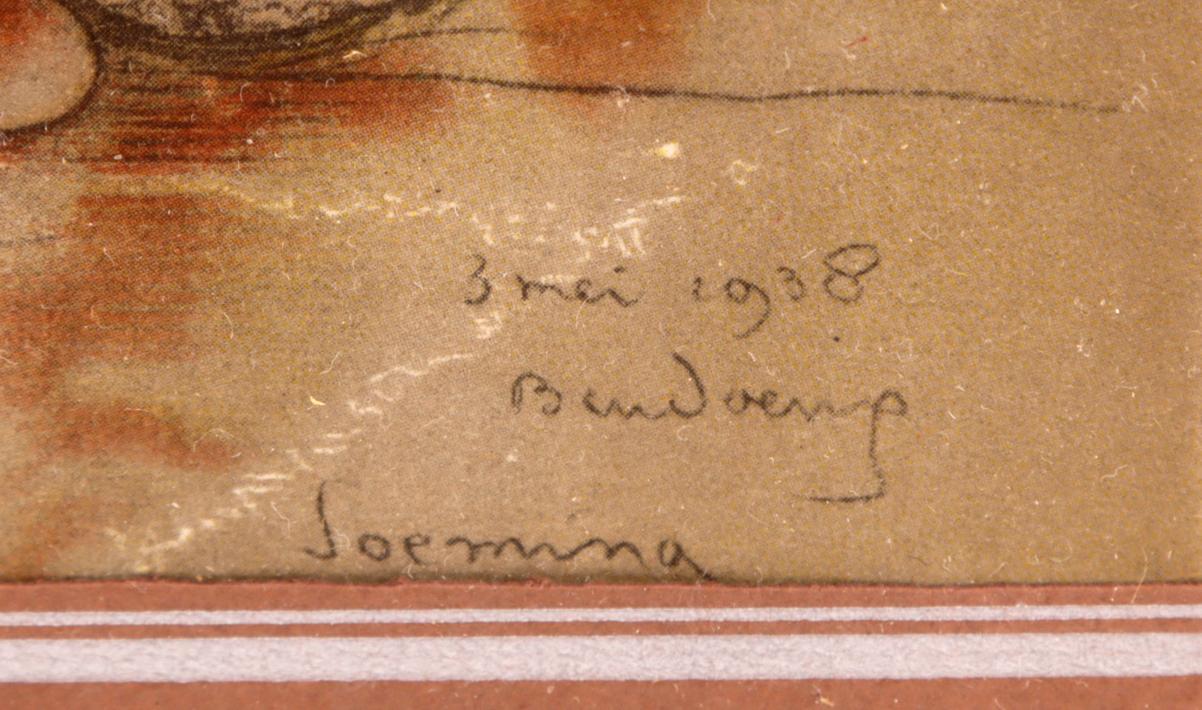 3 mei 1938
Bandoeng
Soemina